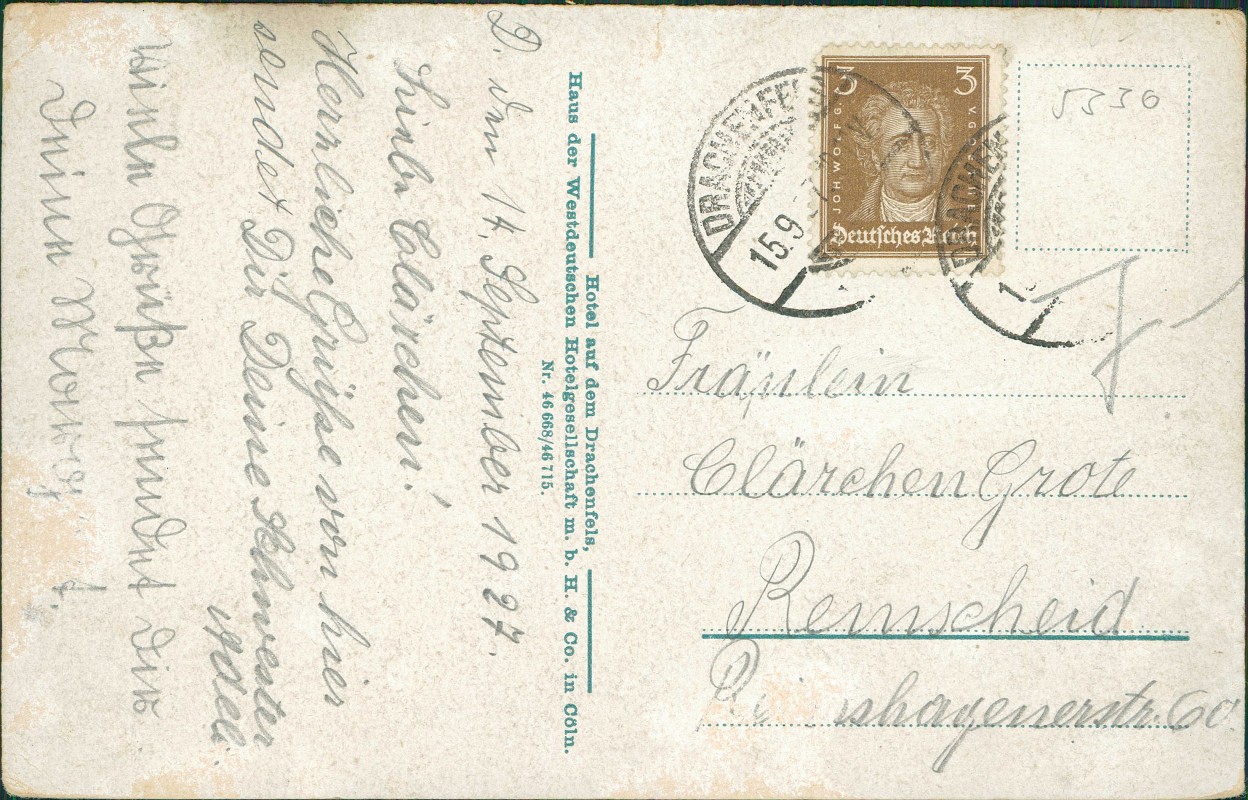 D. den 14. September 1927.
Liebe Clärchen!
Herzliche Grüße von hier
sendet Dir Deine Schwester
Adele
viele Grüße sendet Dir
Deine
Hotel auf dem Drachenfels,
Haus der Westdeutschen Hotelgesellschaft m. b. H. & Co. in Cöln.
Nr. 46 668/46 715.
3 3
JOH WOLFG V GOETHE
Deutsches Reich
DRACHENFELS
15.9
DRACHEN
5330
Fräulein
Clärchen Grote
Remscheid
60